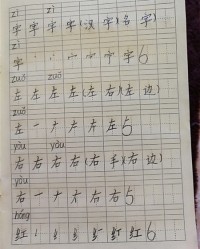 zì zì
字 字 字 字 (汉 字) (名 字)
zì
字 丶 丷 宀 字 字 6
zuǒ zuǒ
左 左 左 左 (左 右) (左 边)
zuǒ
左 一 ナ 左 左 5
yòu yòu
右 右 右 右 (右 手) (右 边)
yòu
右 一 ナ 右 右 5
hóng
红 纟 红 红 6